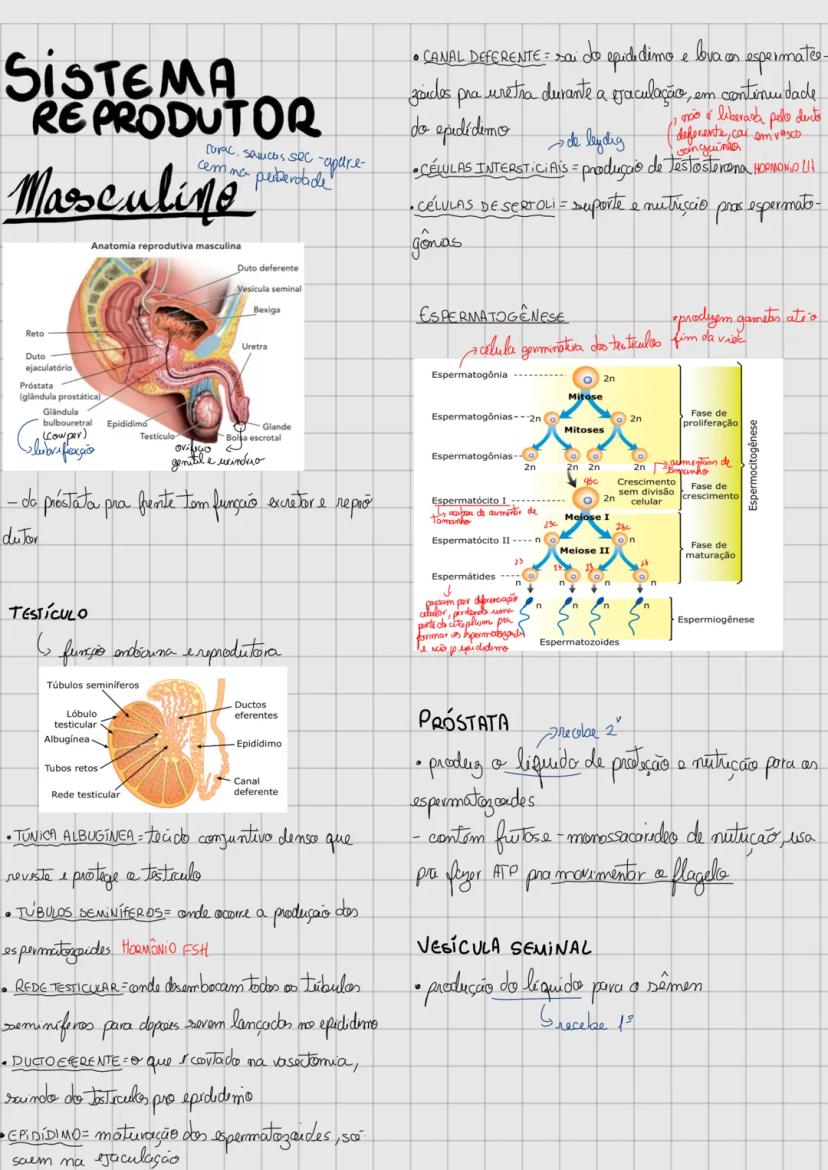 SISTEMA
REPRODUTOR
carac. sexuais sec - apare-
cem na puberdade
Masculino
Anatomia reprodutiva masculina
Duto deferente
Vesícula seminal
Bexiga
Reto
Uretra
Duto
ejaculatório
Próstata
(glândula prostática)
Glândula
bulbouretral
(cowper)
lubrificação
Epidídimo
Testículo
Glande
Bolsa escrotal
orifício
genital e urinário
- da próstata pra frente tem função excretor e repro
dutor
TESTÍCULO
função endócrina e reprodutora
Túbulos seminíferos
Lóbulo
testicular
Albugínea
Tubos retos
Rede testicular
Ductos
eferentes
Epidídimo
Canal
deferente
• TÚNICA ALBUGÍNEA = tecido conjuntivo denso que
reveste e protege o testículo
• TÚBULOS SEMINÍFEROS = onde ocorre a produção dos
espermatozoides HORMÔNIO FSH
• REDE TESTICULAR = onde desembocam todos os túbulos
seminíferos para depois serem lançados no epidídimo
• DUCTO EFERENTE = o que é cortado na vasectomia,
saindo do testículo pro epidídimo
• EPIDÍDIMO = maturação dos espermatozoides, só
saem na ejaculação
• CANAL DEFERENTE = sai do epidídimo e leva os espermato-
zoides pra uretra durante a ejaculação, em continuidade
do epidídimo
de leydig
não é liberada pelo ducto
deferente, cai em vasos
sanguíneos
• CÉLULAS INTERSTICIAIS = produção de testosterona HORMONIO LH
• CÉLULAS DE SERTOLI = suporte e nutrição pras espermato-
gônias
ESPERMATOGÊNESE
• produzem gametas até o
fim da vida
célula germinativa dos testículos
Espermatogônia
2n
Mitose
Espermatogônias
2n
2n
Mitoses
Fase de
proliferação
Espermatogônias
2n
2n
2n
2n
aumentam de
tamanho
46c
Crescimento
sem divisão
celular
Fase de
crescimento
Espermatócito I
2n
acabou de aumentar de
tamanho
Meiose I
23c
23c
Espermatócito II
n
n
Meiose II
Fase de
maturação
23
23
23
23
Espermátides
n
n
n
n
Espermocitogênese
passam por diferenciação
celular, perdendo uma
parte do citoplasma pra
formar os espermatozoides
e vão p epidídimo
n
n
n
n
Espermiogênese
Espermatozoides
PRÓSTATA
recebe 2º
• produz o líquido de proteção e nutrição para os
espermatozoides
- contém frutose - monossacarídeo de nutrição, usa
pra fazer ATP pra movimentar o flagelo
VESÍCULA SEMINAL
• produção do líquido para o sêmen
recebe 1º